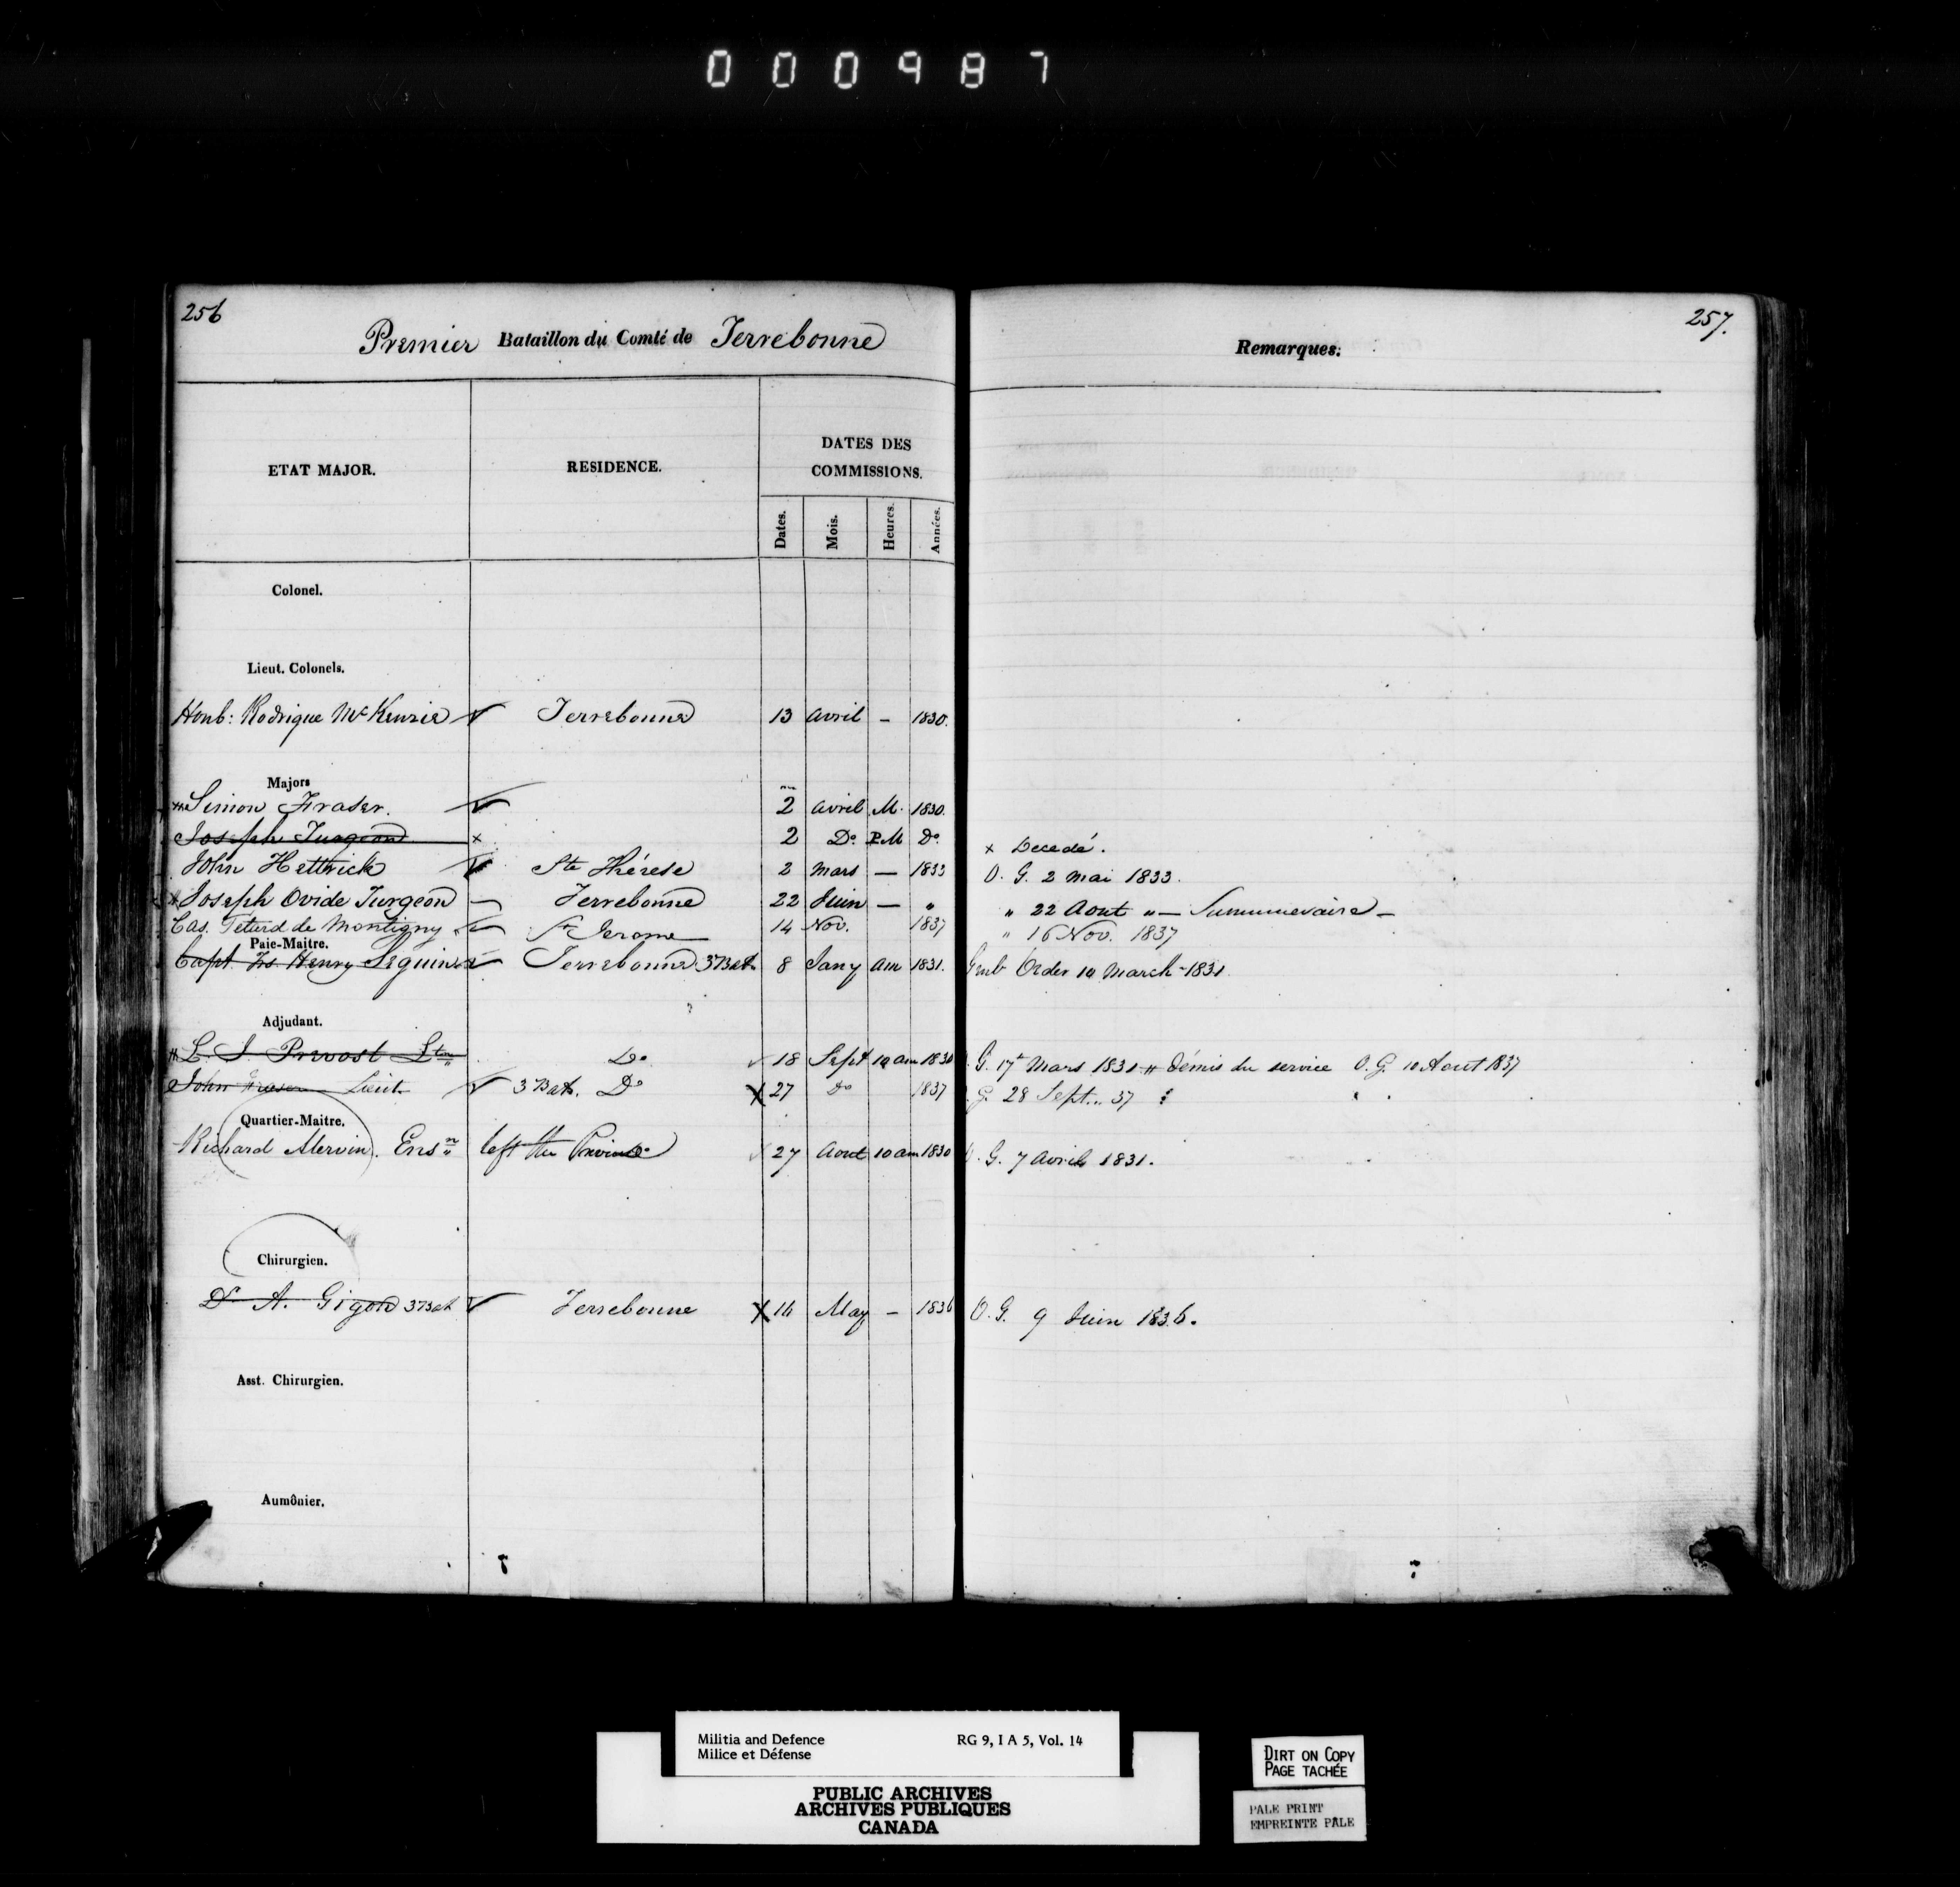 000987
256
Premier Bataillon du Comté de Terrebonne
ETAT MAJOR. RESIDENCE. DATES DES COMMISSIONS.
Dates. Mois. Heures. Années.
Colonel.
Lieut. Colonels.
Honb: Rodrique McKenzie Terrebonne 13 avril - 1830.
Majors
Simon Fraser. 2 avril M. 1830.
Joseph Turgeon x 2 Do. P.M Do.
John Hettrick Ste Thérese 2 mars — 1833
x Joseph Ovide Turgeon Terrebonne 22 Juin — "
Cas. Teturd de Montigny St Jerome 14 Nov. 1837
Paie-Maitre.
Capt. Frs Henry Seguin Terrebonne 3 Bat. 8 Jany am 1831.
Adjudant.
L. J. Prevost Do 18 Sept 10 am 1830
John Fraser Lieut. 3 Bat. Do X 27 do 1837
Quartier-Maitre.
Richard Mervin. Ensn left the Province 27 Aout 10 am 1830
Chirurgien.
Dr A. Gigon 3 Bat Terrebonne X 14 May - 1836
Asst. Chirurgien.
Aumônier.
257.
Remarques.
x Decedé.
O. G. 2 Mai 1833.
" 22 Aout " —
" 16 Nov. 1837
Order 10 March - 1831
G. 17t Mars 1831 # Démis du service O. G. 10 Aout 1837
G. 28 Sept. 37
. G. 7 Avril 1831.
O. G. 9 Juin 1836.
Militia and Defence RG 9, I A 5, Vol. 14
Milice et Défense
PUBLIC ARCHIVES
ARCHIVES PUBLIQUES
CANADA
DIRT ON COPY
PAGE TACHÉE
PALE PRINT
EMPREINTE PÂLE